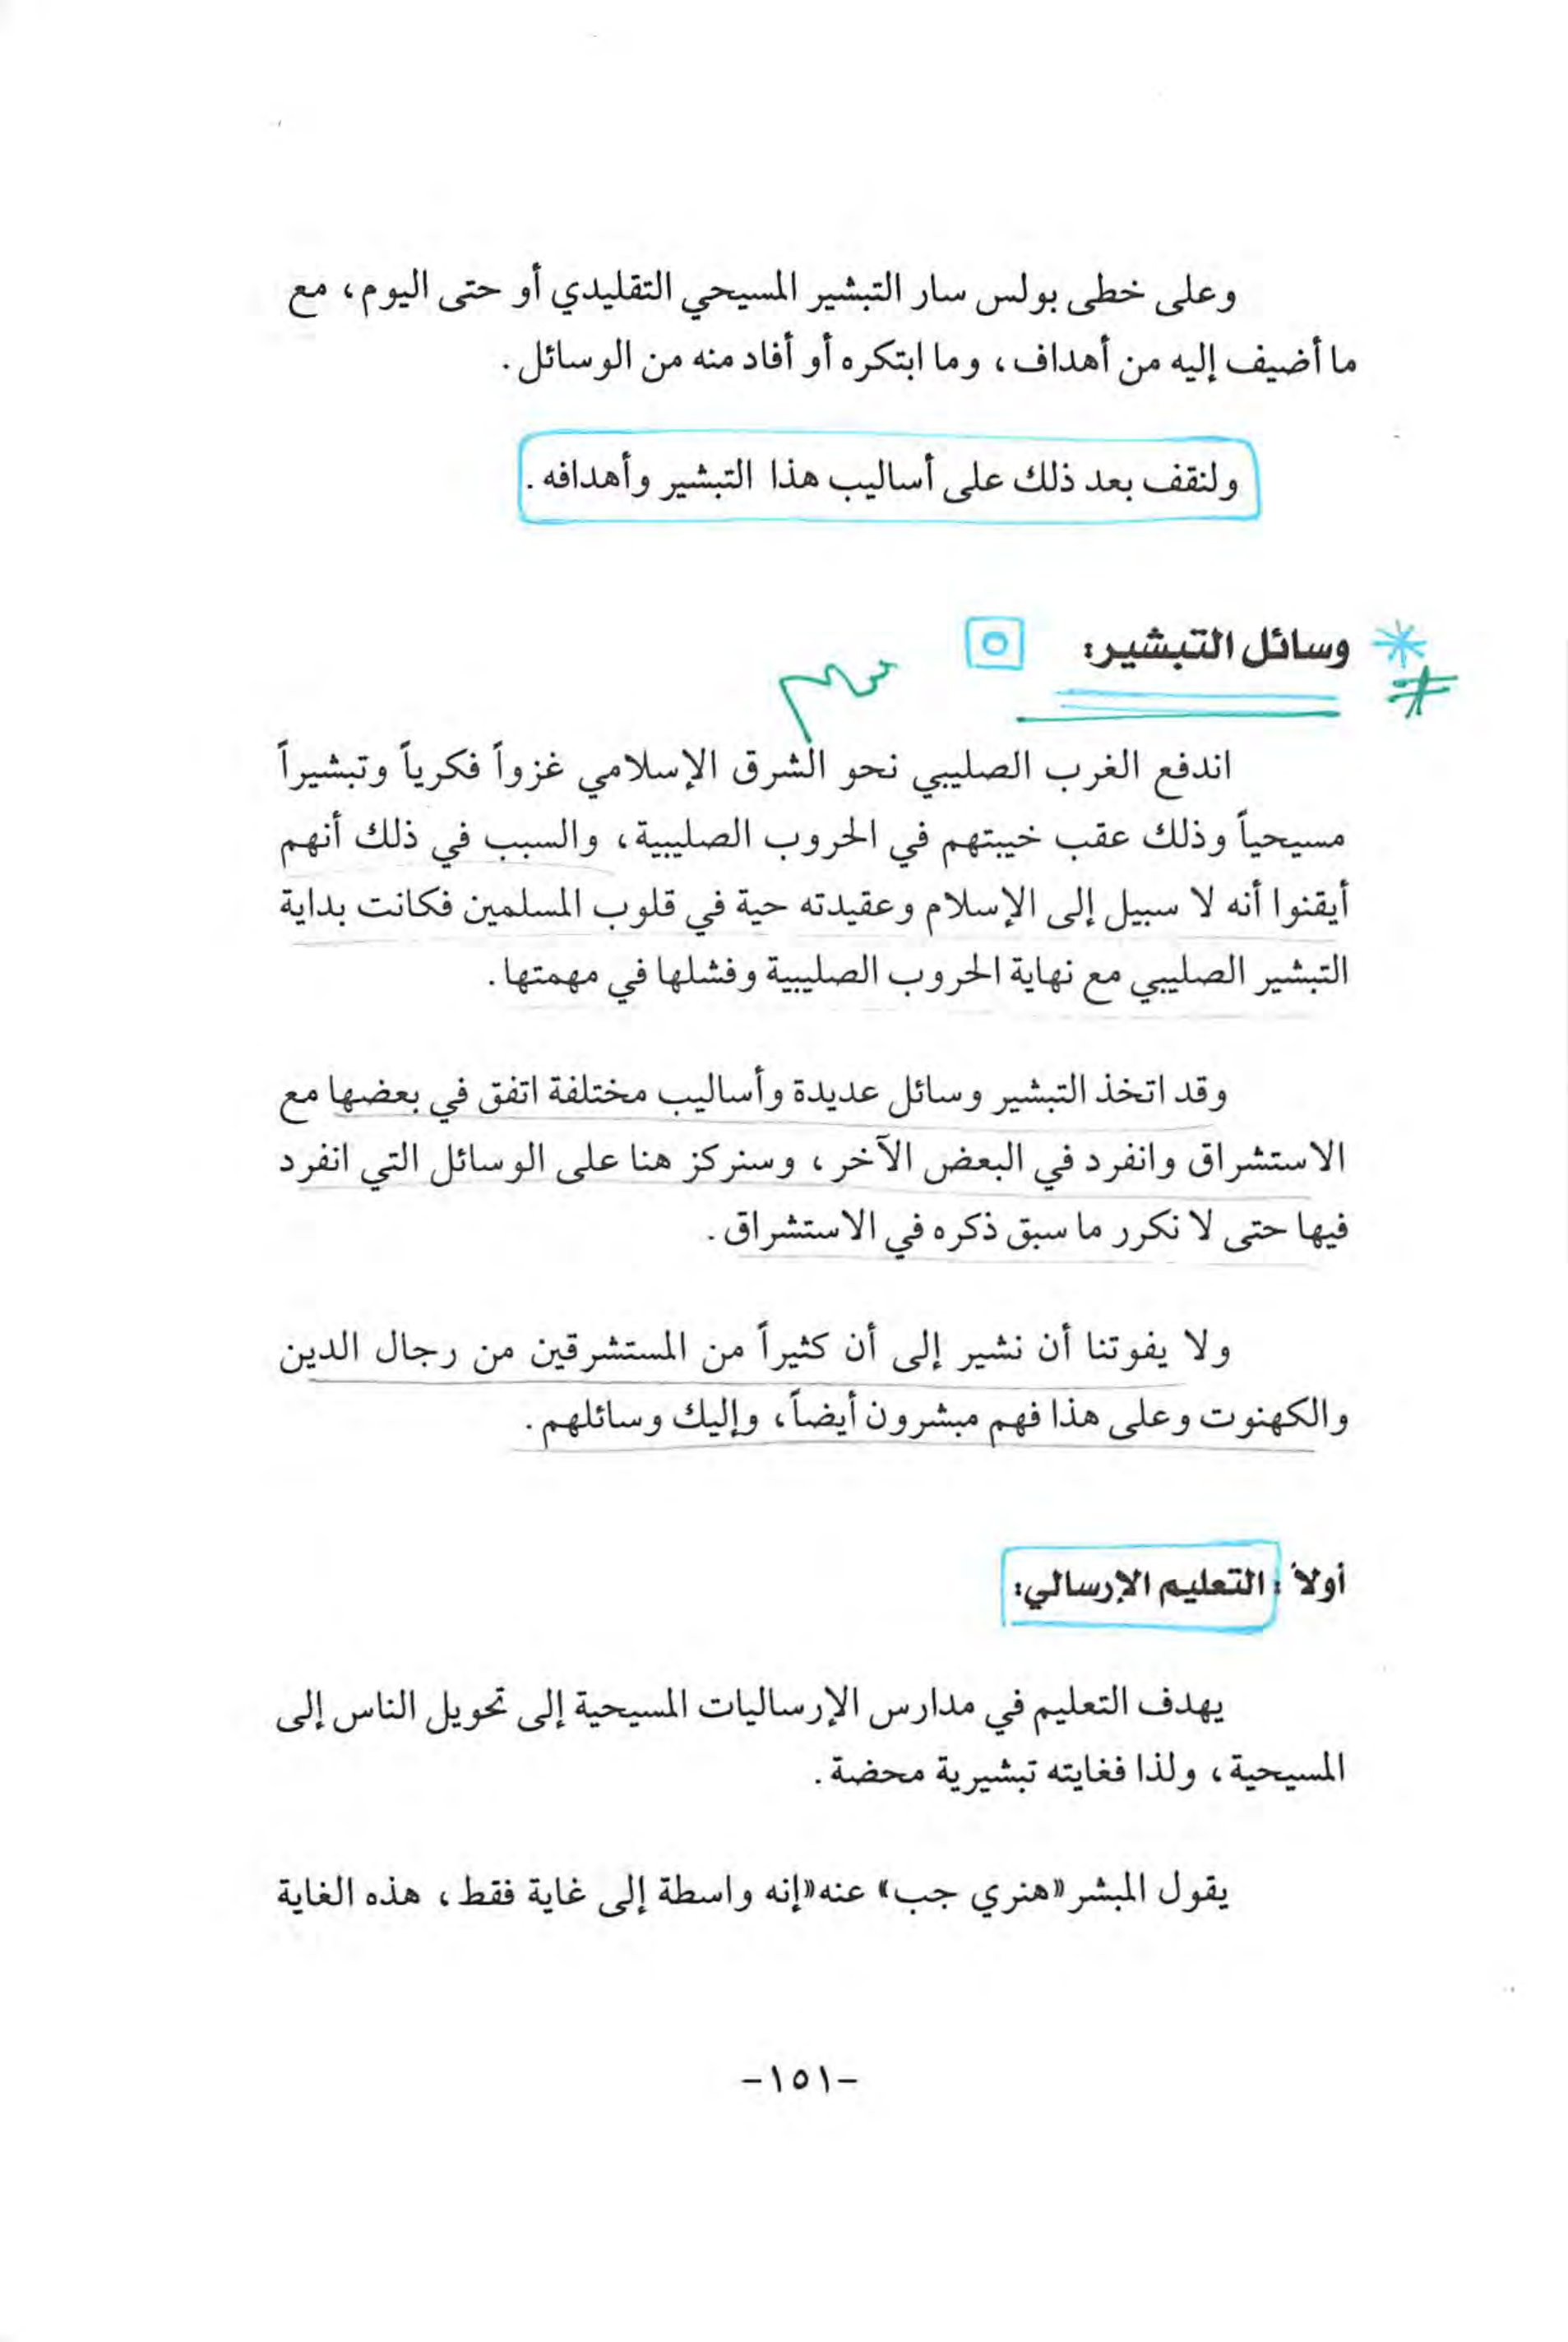 وعلى خطى بولس سار التبشير المسيحي التقليدي أو حتى اليوم، مع
ما أضيف إليه من أهداف، وما ابتكره أو أفاد منه من الوسائل.
ولنقف بعد ذلك على أساليب هذا التبشير وأهدافه.
وسائل التبشير: ٥
اندفع الغرب الصليبي نحو الشرق الإسلامي غزواً فكرياً وتبشيراً
مسيحياً وذلك عقب خيبتهم في الحروب الصليبية، والسبب في ذلك أنهم
أيقنوا أنه لا سبيل إلى الإسلام وعقيدته حية في قلوب المسلمين فكانت بداية
التبشير الصليبي مع نهاية الحروب الصليبية وفشلها في مهمتها.
وقد اتخذ التبشير وسائل عديدة وأساليب مختلفة اتفق في بعضها مع
الاستشراق وانفرد في البعض الآخر، وسنركز هنا على الوسائل التي انفرد
فيها حتى لا نكرر ما سبق ذكره في الاستشراق.
ولا يفوتنا أن نشير إلى أن كثيراً من المستشرقين من رجال الدين
والكهنوت وعلى هذا فهم مبشرون أيضاً، وإليك وسائلهم.
أولاً : التعليم الإرسالي:
يهدف التعليم في مدارس الإرساليات المسيحية إلى تحويل الناس إلى
المسيحية، ولذا فغايته تبشيرية محضة.
يقول المبشر «هنري جب» عنه «إنه واسطة إلى غاية فقط، هذه الغاية
-١٥١-